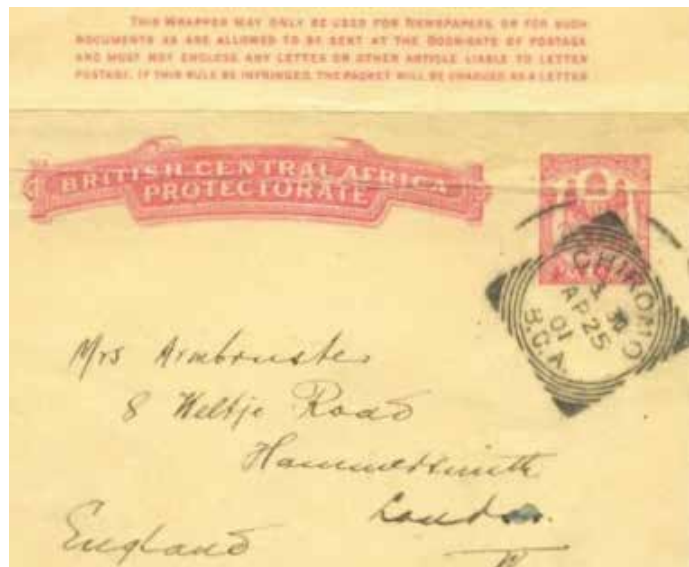 THIS WRAPPER MAY ONLY BE USED FOR NEWSPAPERS, OR FOR SUCH
DOCUMENTS AS ARE ALLOWED TO BE SENT AT THE BOOK-RATE OF POSTAGE
AND MUST NOT ENCLOSE ANY LETTER OR OTHER ARTICLE LIABLE TO LETTER
POSTAGE. IF THIS RULE BE INFRINGED, THE PACKET WILL BE CHARGED AS A LETTER
BRITISH CENTRAL AFRICA
PROTECTORATE
CHIROMO
AP 25
01
B.C.A.
Mrs Armbruster
8 Weltje Road
Hammersmith
London
England